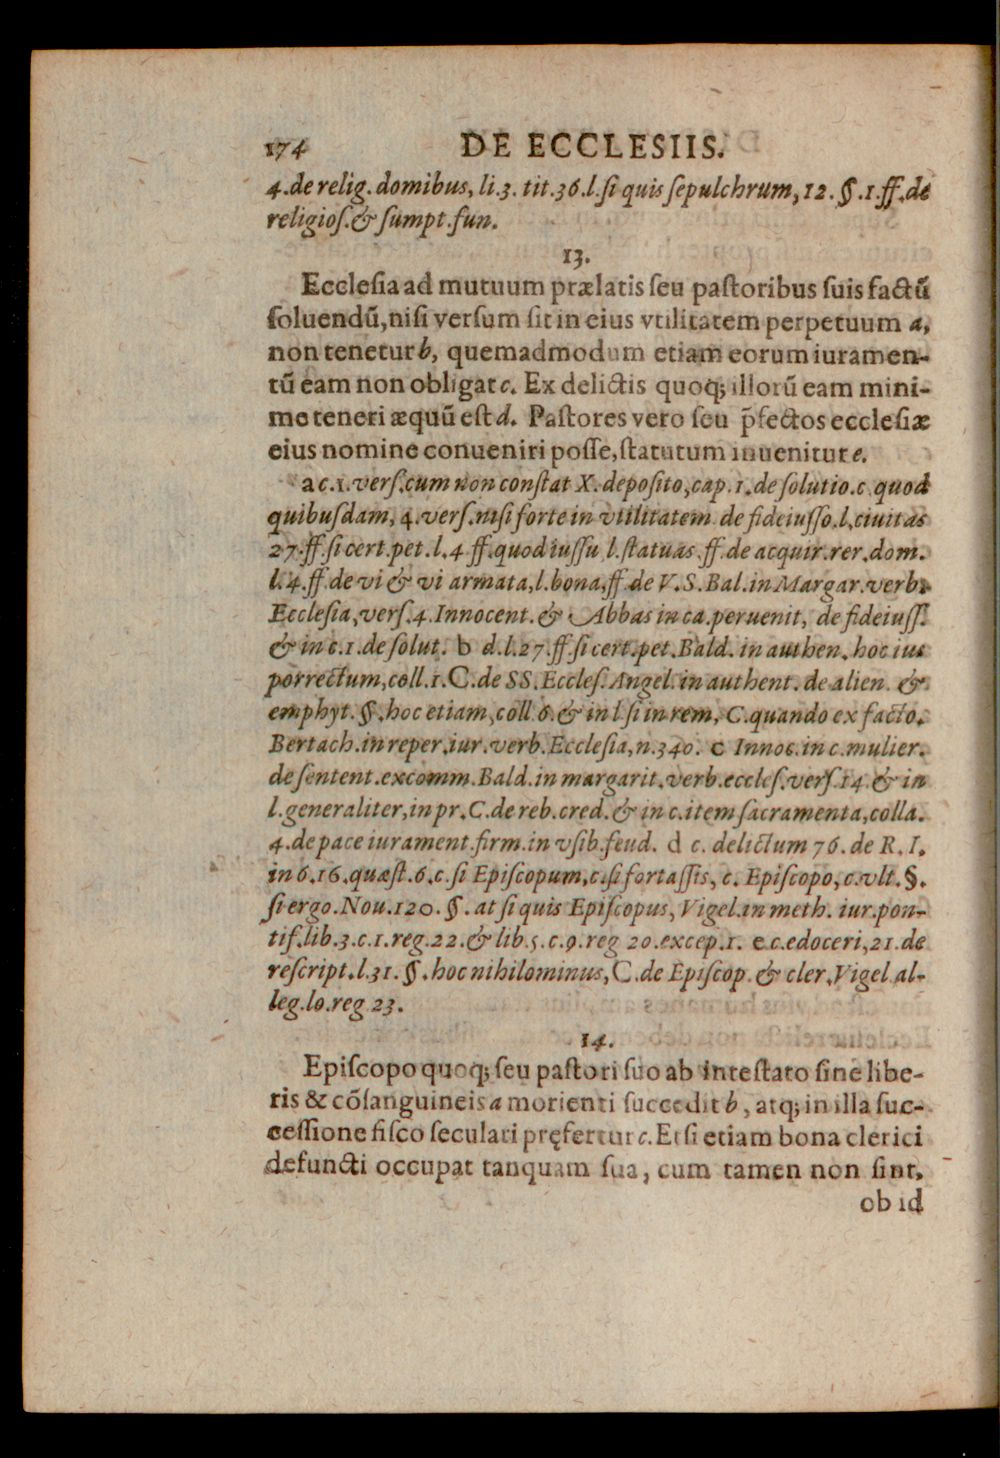 174 DE ECCLESIIS.
4. de relig. domibus, li.3. tit.36.l. si quis ſepulchrum, 12. §.1.ff. de
religioſ. & ſumpt. fun.
13.
Eccleſia ad mutuum prælatis ſeu paſtoribus ſuis factũ
ſoluendũ, niſi verſum ſit in eius vtilitatem perpetuum a,
non tenetur b, quemadmodum etiam eorum iuramen-
tũ eam non obligat c. Ex delictis quoq; illorũ eam mini-
me teneri æquũ eſt d. Paſtores vero ſeu p̃fectos eccleſiæ
eius nomine conueniri poſſe, ſtatutum inuenitur e.
a c.1. verſ. cum non conſtat X. depoſito, cap. 1. de ſolutio. c. quod
quibuſdam, 4. verſ. niſi forte in vtilitatem de fideiuſſo. l. ciuitas
27. ff. ſi cert. pet. l. 4 ff. quod iuſſu, l. ſtatuas. ff. de acquir. rer. dom.
l. 4. ff. de vi & vi armata, l. bona, ff. de V. S. Bal. in Margar. verb.
Eccleſia, verſ. 4. Innocent. & Abbas in ca. peruenit, de fideiuſſ.
& in c.1. de ſolut. b d. l. 27. ff. ſi cert. pet. Bald. in authen. hoc ius
porrectum, coll. 1. C. de SS. Eccleſ. Angel. in authent. de alien. &
emphyt. §. hoc etiam, coll. 6. & in l. ſi in rem, C. quando ex facto.
Bertach. in reper. iur. verb. Eccleſia, n. 340. c Innoc. in c. mulier.
de ſentent. excomm. Bald. in margarit. verb. eccleſ. verſ. 14 & in
l. generaliter, in pr. C. de reb. cred. & in c. item ſacramenta, colla.
4. de pace iurament. firm. in vſib. feud. d c. delictum 76. de R. I.
in 6. 16. quæſt. 6. c. ſi Epiſcopum, c. ſi fortaſſis, c. Epiſcopo, c. vlt. §.
ſi ergo. Nou. 120. §. at ſi quis Epiſcopus, Vigel. in meth. iur. pon-
tif. lib. 3. c. 1. reg. 22. & lib. 5. c. 9. reg 20. excep. 1. e c. edoceri, 21. de
reſcript. l. 31. §. hoc nihilominus, C. de Epiſcop. & cler. Vigel al-
leg. lo. reg 23.
14.
Epiſcopo quoq; ſeu paſtori ſuo ab inteſtato ſine libe-
ris & cõſanguineis a morienti ſuccedit b, atq; in illa ſuc-
ceſſione fiſco ſeculari pręfertur c. Et ſi etiam bona clerici
defuncti occupat tanquam ſua, cum tamen non ſint,
ob id